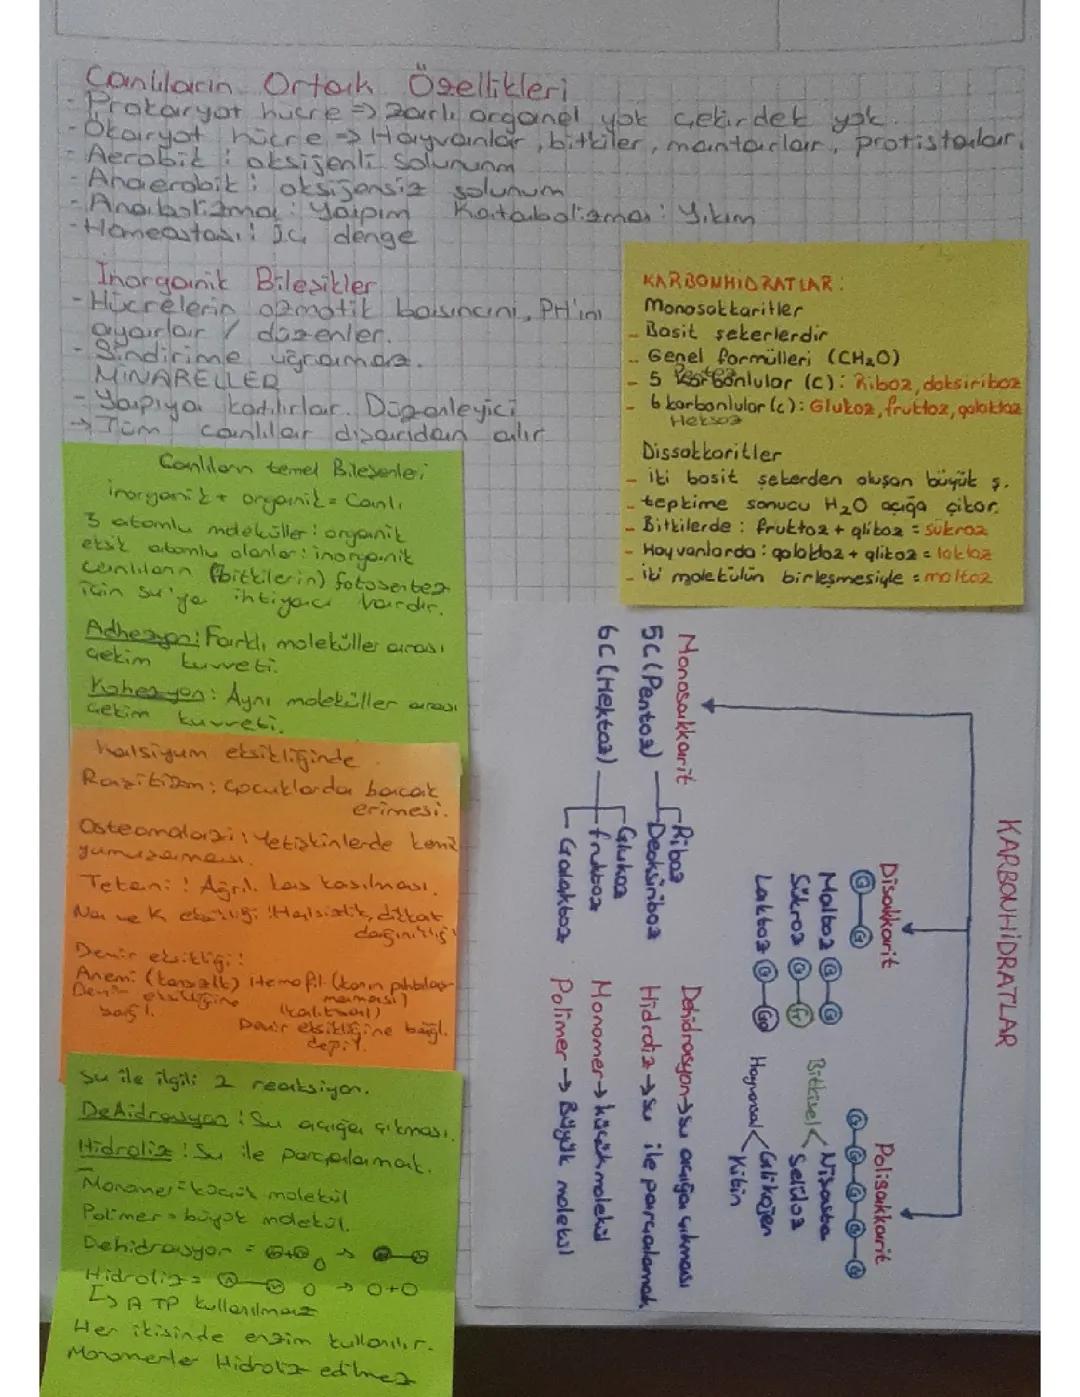 Canlıların Ortak Özellikleri
- Prokaryot hücre => zarlı organel yok çekirdek yok.
- Ökaryot hücre => Hayvanlar, bitkiler, mantarlar, protistalar.
- Aerobik : oksijenli solunum
- Anaerobik : oksijensiz solunum
- Anabolizma : Yapım Katabolizma : Yıkım
- Homeostası : İç denge
İnorganik Bileşikler
- Hücrelerin ozmotik basıncını, PH'ını
ayarlar / düzenler.
- Sindirime uğramaz.
MİNARELLER
- Yapıya katılırlar. Düzenleyici
-> Tüm canlılar dışarıdan alır
KARBONHİDRATLAR :
Monosakkaritler
- Basit şekerlerdir
- Genel formülleri (CH₂O)
- 5 karbonlular (C) : Riboz, doksiriboz
Pentoz
- 6 karbonlular (c) : Glukoz, fruktoz, galaktoz
Heksoz
Dissakkaritler
- iki basit şekerden oluşan büyük ş.
- tepkime sonucu H₂O açığa çıkar.
- Bitkilerde : fruktoz + glikoz = sükroz
- Hayvanlarda : galaktoz + glikoz = laktoz
- iki molekülün birleşmesiyle = maltoz
Canlıların temel Bileşenleri
inorganik + organik = Canlı
3 atomlu moleküller : organik
eksik atomlu olanlar : inorganik
canlıların (bitkilerin) fotosentez
için su'ya ihtiyacı vardır.
Adhezyon : Farklı moleküller arası
çekim kuvveti.
Kohezyon : Aynı moleküller arası
çekim kuvveti.
Kalsiyum eksikliğinde
Raşitizm : Çocuklarda bacak
erimesi.
Osteomalazi : Yetişkinlerde kemik
yumuşaması.
Tetani : Ağrılı kas kasılması.
Na ve K eksikliği : Halsizlik, dikkat
dağınıklığı
Demir eksikliği :
Anemi (kansızlık) Hemofili (kanın pıhtılaş-
maması)
Demir eksikliğine
bağlı.
(kalıtsal)
Demir eksikliğine bağlı
değil.
Su ile ilgili 2 reaksiyon.
Dehidrasyon : Su açığa çıkması.
Hidroliz : Su ile parçalamak.
Monomer = küçük molekül
Polimer = büyük molekül.
Dehidrasyon =
Hidroliz =
-> ATP kullanılmaz
Her ikisinde enzim kullanılır.
Monomerler Hidroliz edilmez
KARBONHİDRATLAR
Monosakkarit
5C (Pentoz)
Riboz
Deoksiriboz
6C (Hektoz)
Glukoz
fruktoz
Galaktoz
Disakkarit
G G
Maltoz G G
Sükroz G Fr
Laktoz G Ga
Polisakkarit
G G G G G
Bitkisel < Nişasta
Selüloz
Hayvansal < Glikojen
Kitin
Dehidrasyon -> su açığa çıkması
Hidroliz -> su ile parçalamak
Monomer -> küçük molekül
Polimer -> Büyük molekül